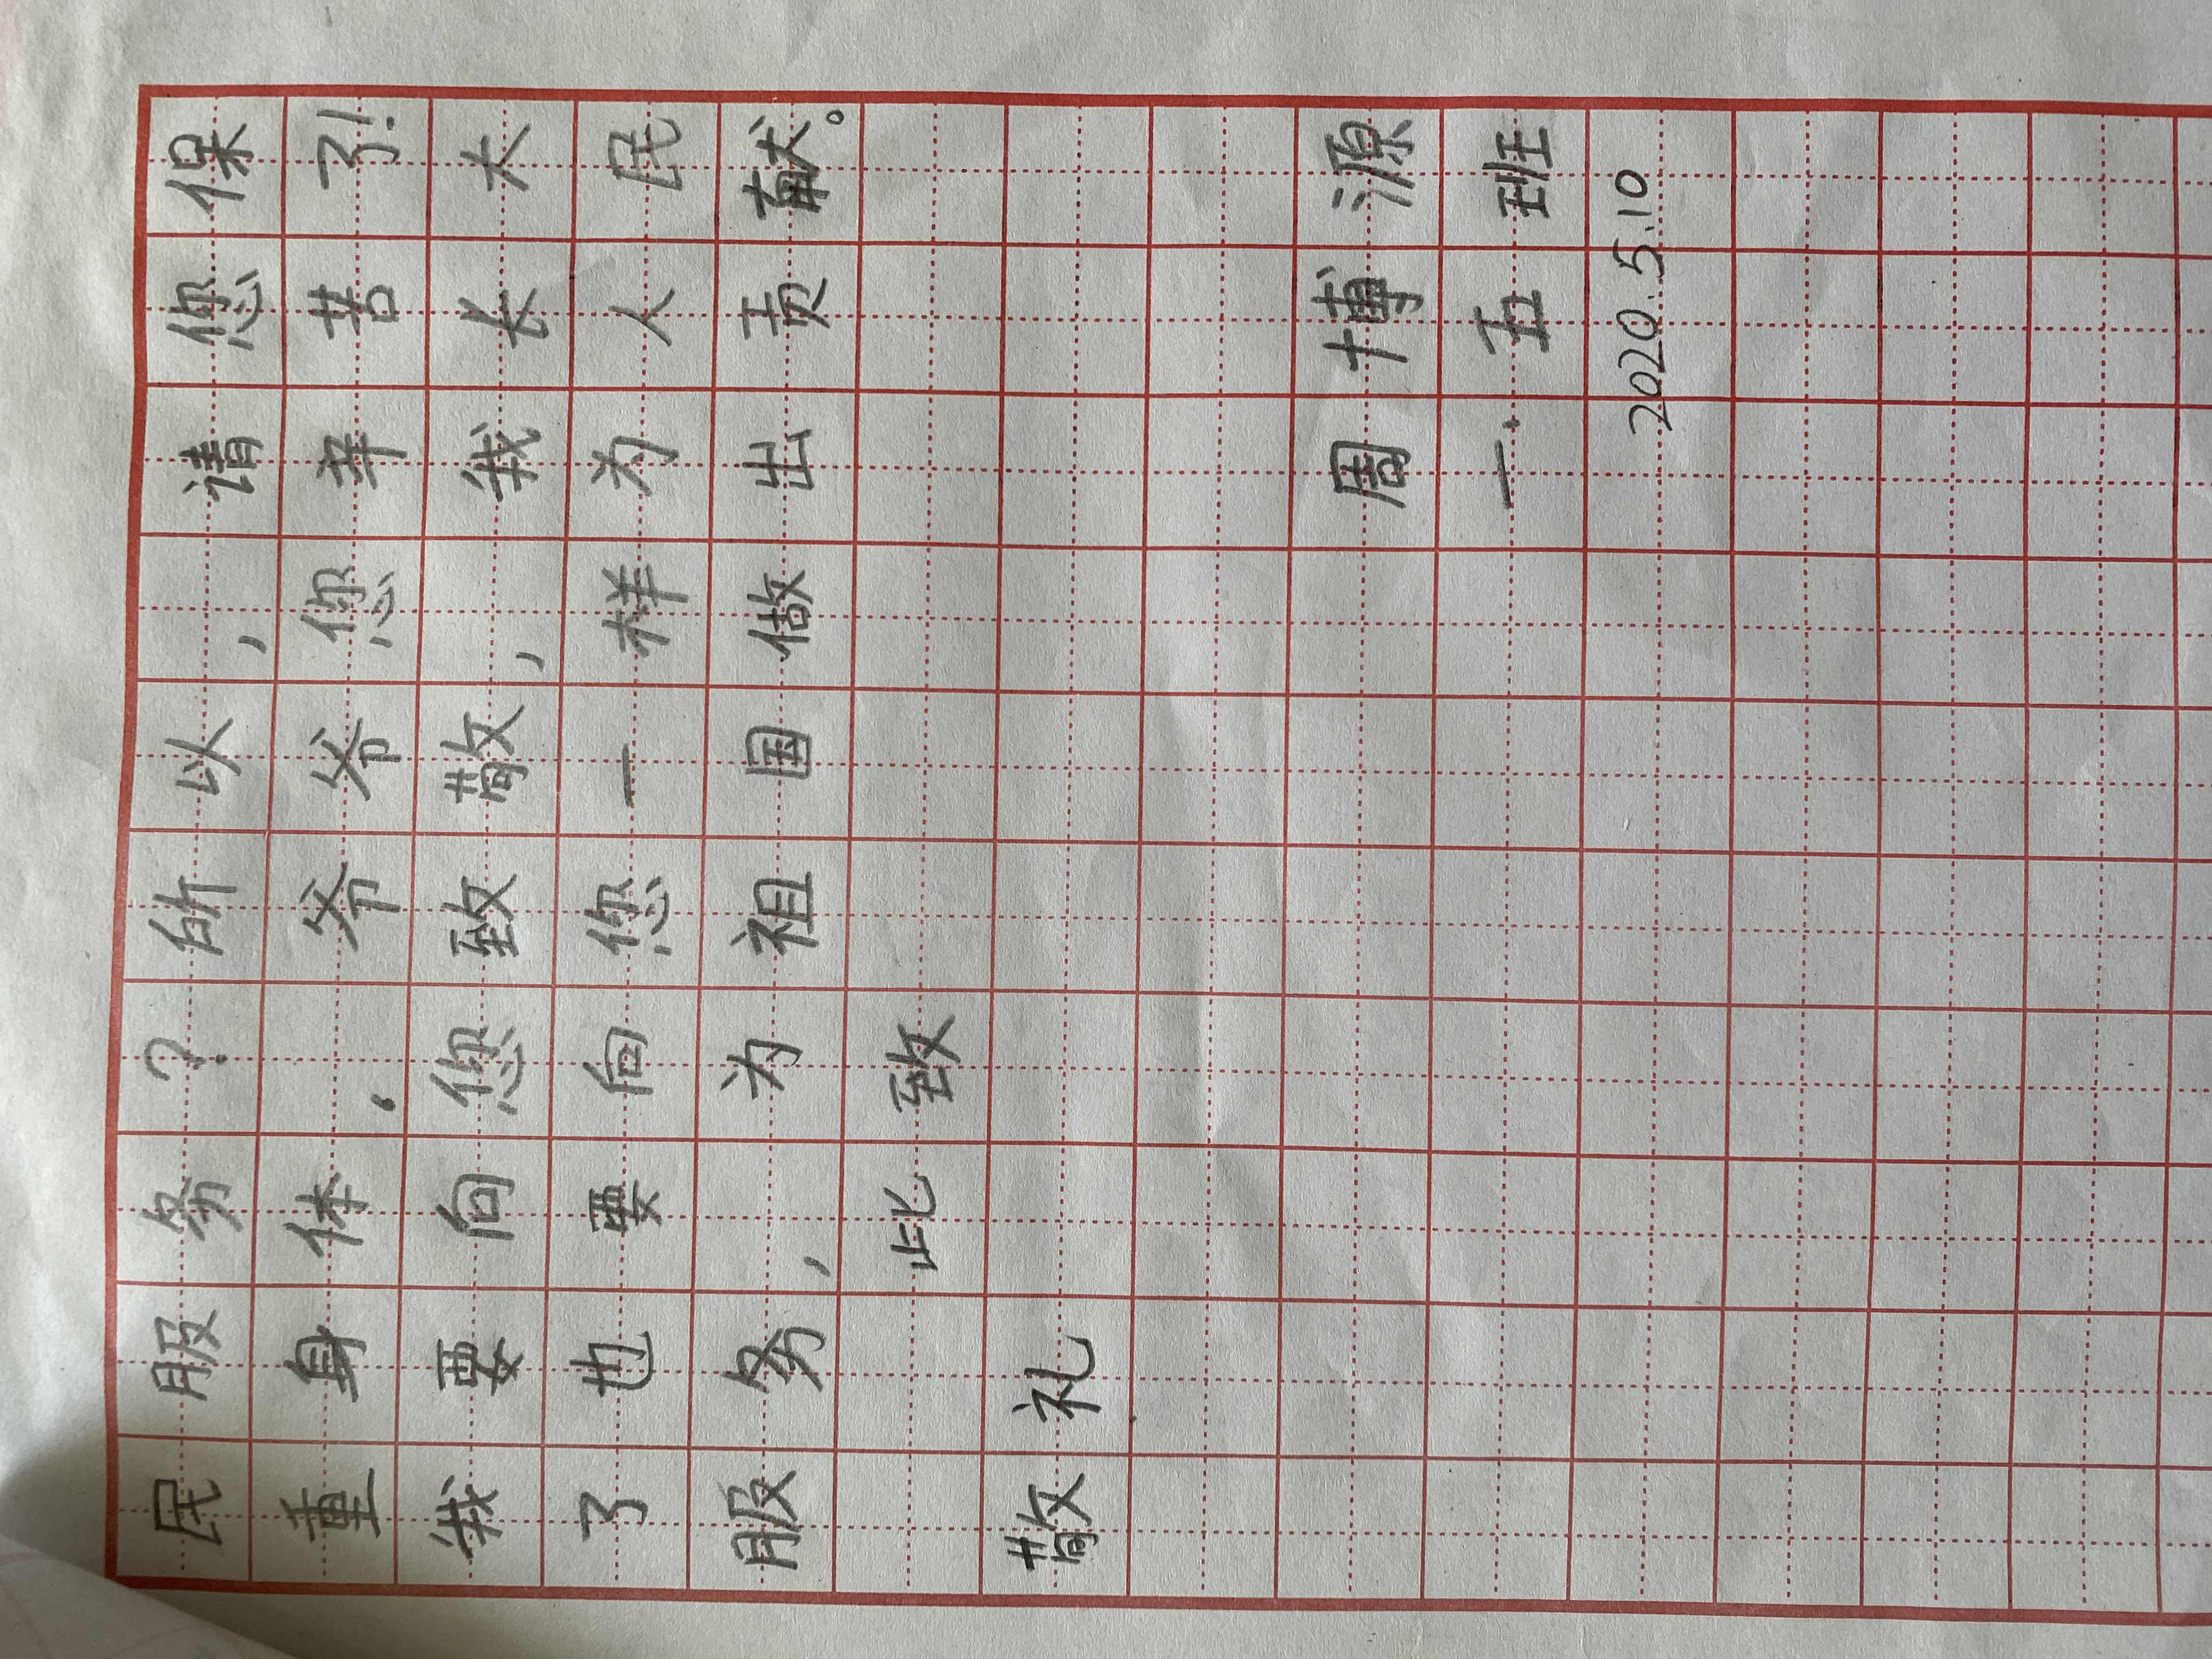 民服务？所以，请您保
重身体，爷爷您辛苦了！
我要向您致敬，我长大
了也要向您一样为人民
服务，为祖国做出贡献。
此致
敬礼
周博源
一.五班
2020.5.10